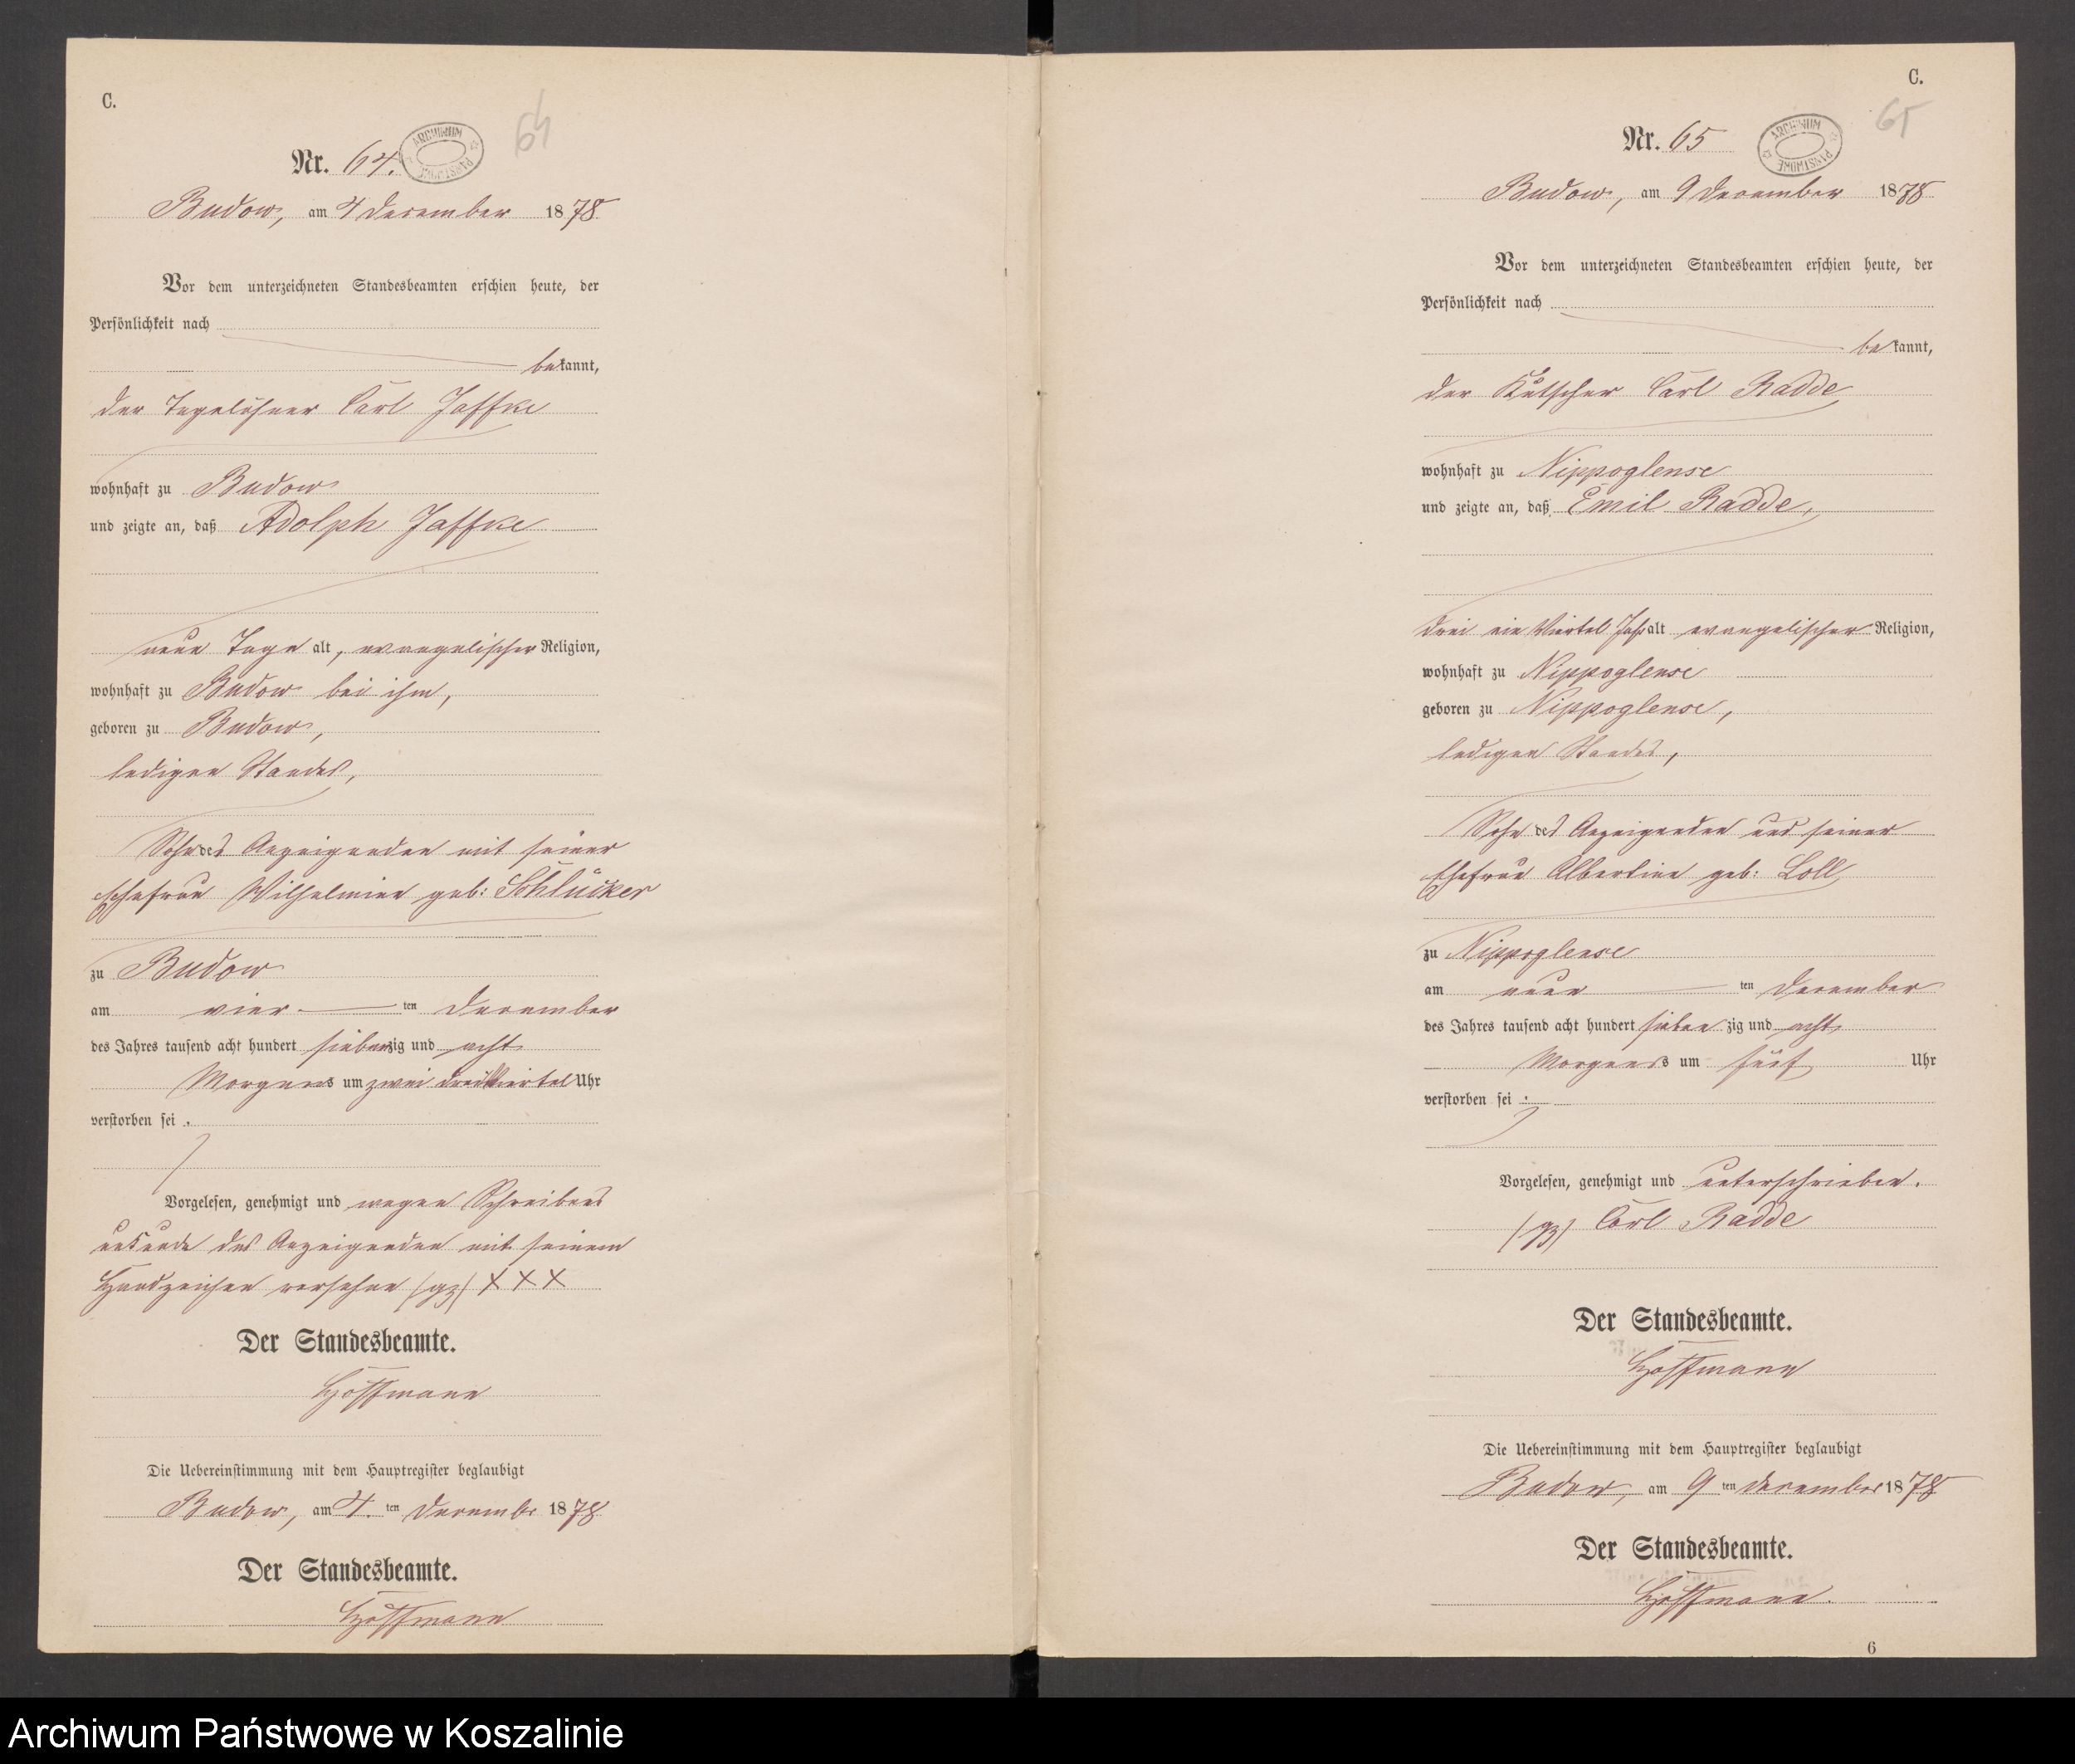 C.
64
Nr. 64.
ARCHIWUM PAŃSTWOWE
Budow, am 4 December 1878.
Vor dem unterzeichneten Standesbeamten erschien heute, der
Persönlichkeit nach
bekannt,
der Tagelöhner Carl Jaffke
wohnhaft zu Budow
und zeigte an, daß Adolph Jaffke
neun Tage alt, evangelischer Religion,
wohnhaft zu Budow bei ihm,
geboren zu Budow,
ledigen Standes,
Sohn des Anzeigenden mit seiner
Ehefrau Wilhelmine geb: Schlücker
zu Budow
am vier ten December
des Jahres tausend acht hundert siebenzig und acht
Morgens um zwei dreiviertel Uhr
verstorben sei.
Vorgelesen, genehmigt und wegen Schreibens
unkunde des Anzeigenden mit seinem
Handzeichen versehen (gz) XXX
Der Standesbeamte.
Hoffmann
Die Uebereinstimmung mit dem Hauptregister beglaubigt
Budow, am 4. ten Decembr 1878
Der Standesbeamte.
Hoffmann
C.
65
Nr. 65
ARCHIWUM PAŃSTWOWE
Budow, am 9 December 1878
Vor dem unterzeichneten Standesbeamten erschien heute, der
Persönlichkeit nach
bekannt,
der Kutscher Carl Radde
wohnhaft zu Nippoglense
und zeigte an, daß Emil Radde,
drei ein Viertel Jahr alt evangelischer Religion,
wohnhaft zu Nippoglense
geboren zu Nippoglense,
ledigen Standes,
Sohn des Anzeigenden und seiner
Ehefrau Albertine geb: Loll
zu Nippoglense
am neun ten December
des Jahres tausend acht hundert siebenzig und acht
Morgens um fünf Uhr
verstorben sei.
Vorgelesen, genehmigt und unterschrieben.
(gz) Carl Radde
Der Standesbeamte.
Hoffmann
Die Uebereinstimmung mit dem Hauptregister beglaubigt
Budow, am 9 ten December 1878
Der Standesbeamte.
Hoffmann.
6
Archiwum Państwowe w Koszalinie